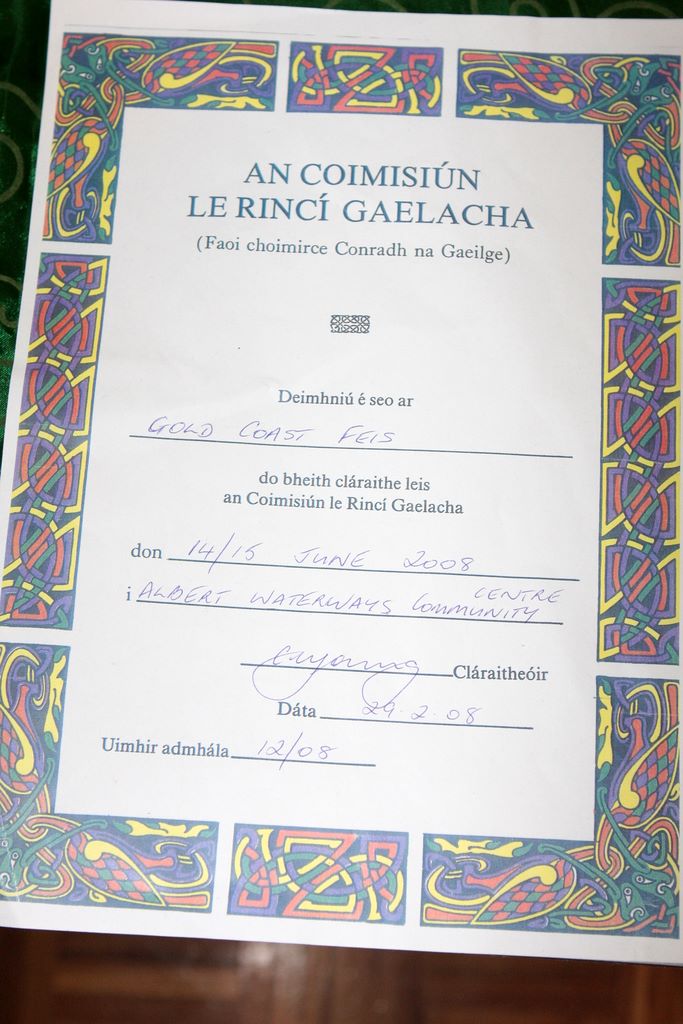 AN COIMISIÚN
LE RINCÍ GAELACHA
(Faoi choimirce Conradh na Gaeilge)
Deimhniú é seo ar
GOLD COAST FEIS
do bheith cláraithe leis
an Coimisiún le Rincí Gaelacha
don 14/15 JUNE 2008
i ALBERT WATERWAYS COMMUNITY CENTRE
Cláraitheóir
Dáta 29.2.08
Uimhir admhála 12/08